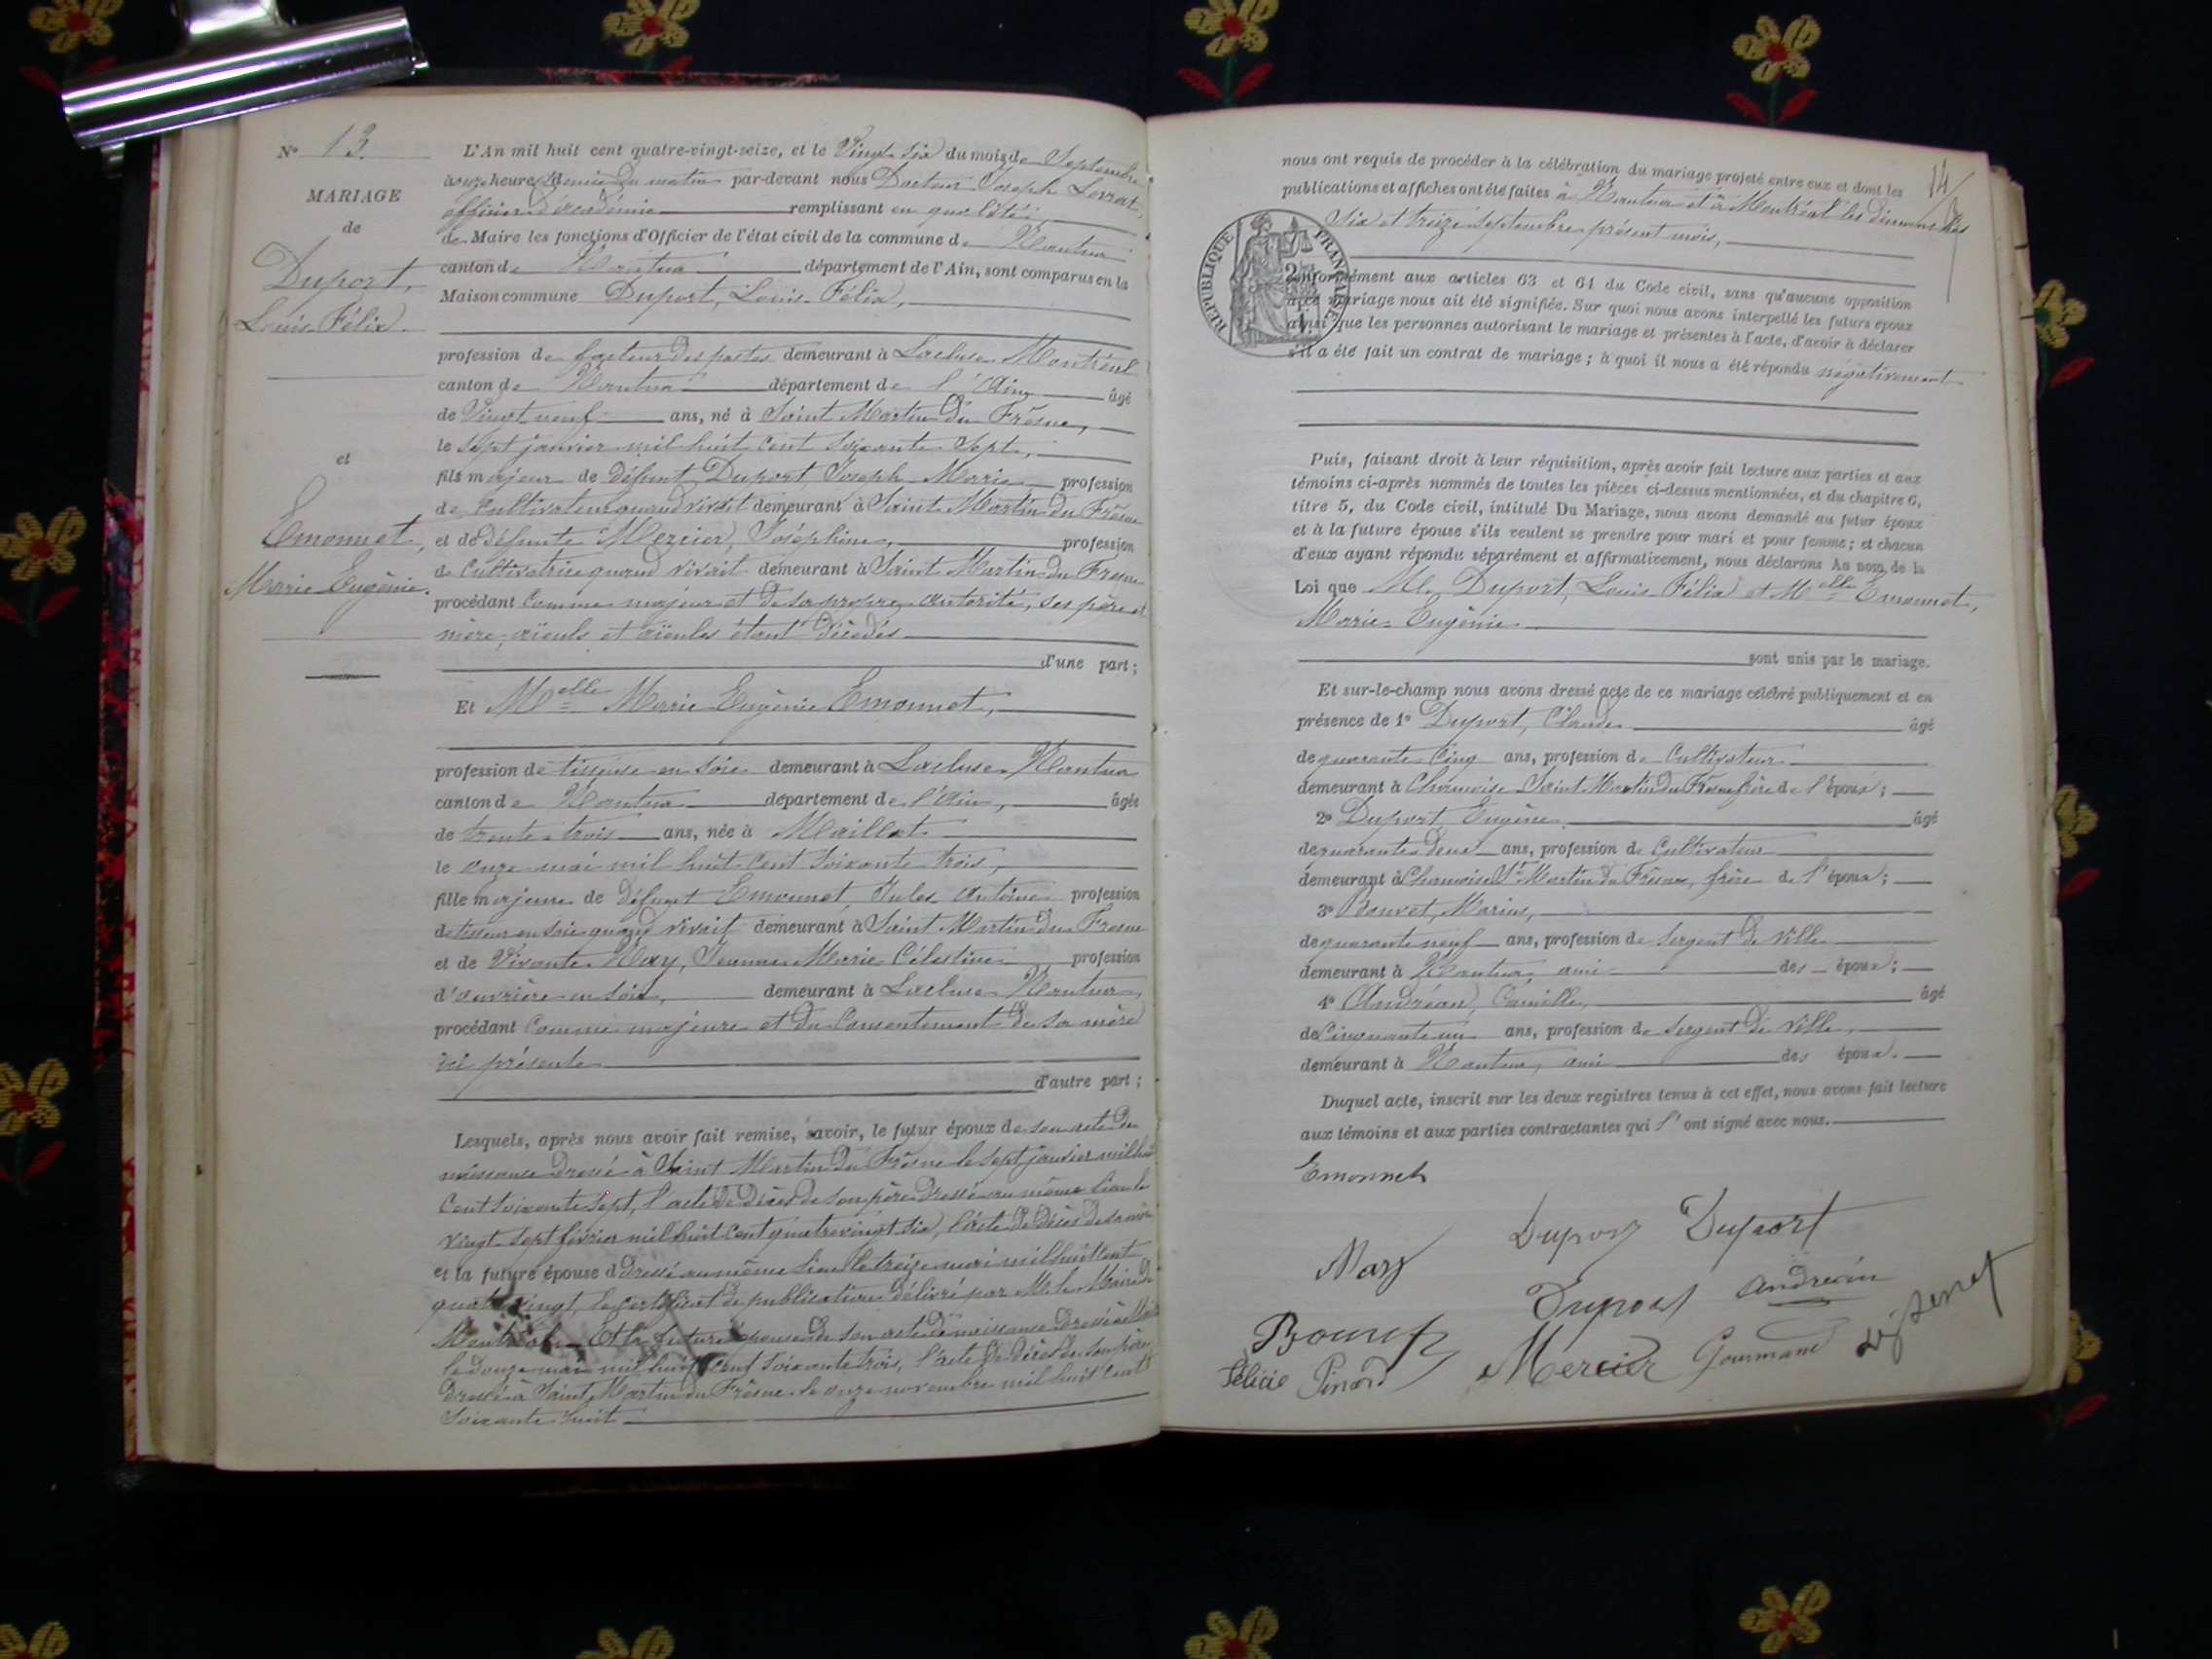 N° 13
MARIAGE
de
Duport,
Louis-Félix.
et
Emonnet,
Marie Eugénie.
L'An mil huit cent quatre-vingt-seize, et le Vingt-six du mois de Septembre
onze heures & demie du matin par-devant nous Docteur Joseph
officier d'académie remplissant en qualité
de Maire les fonctions d'Officier de l'état civil de la commune de Nantua
canton de Nantua département de l'Ain, sont comparus en la
Maison commune Duport, Louis-Félix,
profession de facteur des postes demeurant à Lacluse-Montréal
canton de Nantua département de l'Ain âgé
de Vingt-neuf ans, né à Saint Martin du Frêsne,
le sept janvier mil huit cent soixante sept,
fils majeur de défunt Duport Joseph Marie profession
de Cultivateur quand vivait demeurant à Saint Martin du Frêsne
et de défunte Mercier, Joséphine, profession
de Cultivatrice quand vivait demeurant à Saint Martin du Fresne
procédant comme majeur et de sa propre autorité, ses père et
mère, aïeuls et aïeules étant décédés
d'une part;
Et Melle Marie Eugénie Emonnet,
profession de tisseuse en soie demeurant à Lacluse-Nantua
canton de Nantua département de l'Ain, âgée
de trente-trois ans, née à Maillat
le onze mai mil huit cent soixante trois,
fille majeure de défunt Emonnet, Jules Antoine profession
de tisseur en soie quand vivait demeurant à Saint Martin du Fresne
et de Vivante May, Jeanne Marie Célestine profession
d'ouvrière en soie, demeurant à Lacluse-Nantua,
procédant comme majeure et du consentement de sa mère
ici présente
d'autre part;
Lesquels, après nous avoir fait remise, savoir, le futur époux de son acte de
naissance dressé à Saint Martin du Frêsne le sept janvier mil huit
cent soixante sept, l'acte de décès de son père dressé au même lieu le
vingt-sept février mil huit cent quatre vingt six, l'acte de décès de sa mère
et la future épouse d dressé au même lieu le treize mai mil huit cent
quatre vingt, le certificat de publications délivré par M. le Maire de
Montréal. Et la future épouse de son acte de naissance dressé à
le douze mai mil huit cent soixante trois, l'acte de décès de son père
dressé à Saint Martin du Frêsne le onze novembre mil huit cent
soixante huit
14
nous ont requis de procéder à la célébration du mariage projeté entre eux et dont les
publications et affiches ont été faites à Nantua et à Montréal les dimanches
six et treize septembre présent mois,
RÉPUBLIQUE FRANÇAISE
conformément aux articles 63 et 64 du Code civil, sans qu'aucune opposition
audit mariage nous ait été signifiée. Sur quoi nous avons interpellé les futurs époux
ainsi que les personnes autorisant le mariage et présentes à l'acte, d'avoir à déclarer
s'il a été fait un contrat de mariage; à quoi il nous a été répondu négativement
Puis, faisant droit à leur réquisition, après avoir fait lecture aux parties et aux
témoins ci-après nommés de toutes les pièces ci-dessus mentionnées, et du chapitre 6,
titre 5, du Code civil, intitulé Du Mariage, nous avons demandé au futur époux
et à la future épouse s'ils veulent se prendre pour mari et pour femme; et chacun
d'eux ayant répondu séparément et affirmativement, nous déclarons Au nom de la
Loi que M. Duport, Louis-Félix et Melle Emonnet,
Marie-Eugénie
sont unis par le mariage.
Et sur-le-champ nous avons dressé acte de ce mariage célébré publiquement et en
présence de 1° Duport, Claude âgé
de quarante cinq ans, profession de Cultivateur
demeurant à Chamoise Saint Martin du Frêsne frère de l'époux;
2° Duport Eugène âgé
de quarante deux ans, profession de Cultivateur
demeurant à Chamoise St Martin du Frêsne, frère de l'époux;
3° Bouvet, Marius,
de quarante neuf ans, profession de sergent de ville
demeurant à Nantua, ami des époux;
4° Andréan, Camille, âgé
de cinquante un ans, profession de sergent de ville,
demeurant à Nantua, ami des époux.
Duquel acte, inscrit sur les deux registres tenus à cet effet, nous avons fait lecture
aux témoins et aux parties contractantes qui l'ont signé avec nous.
Emonnet
Duport Duport
May
Duport Andréan
Bouvet
Mercier Gourmand
Félicie Pinard